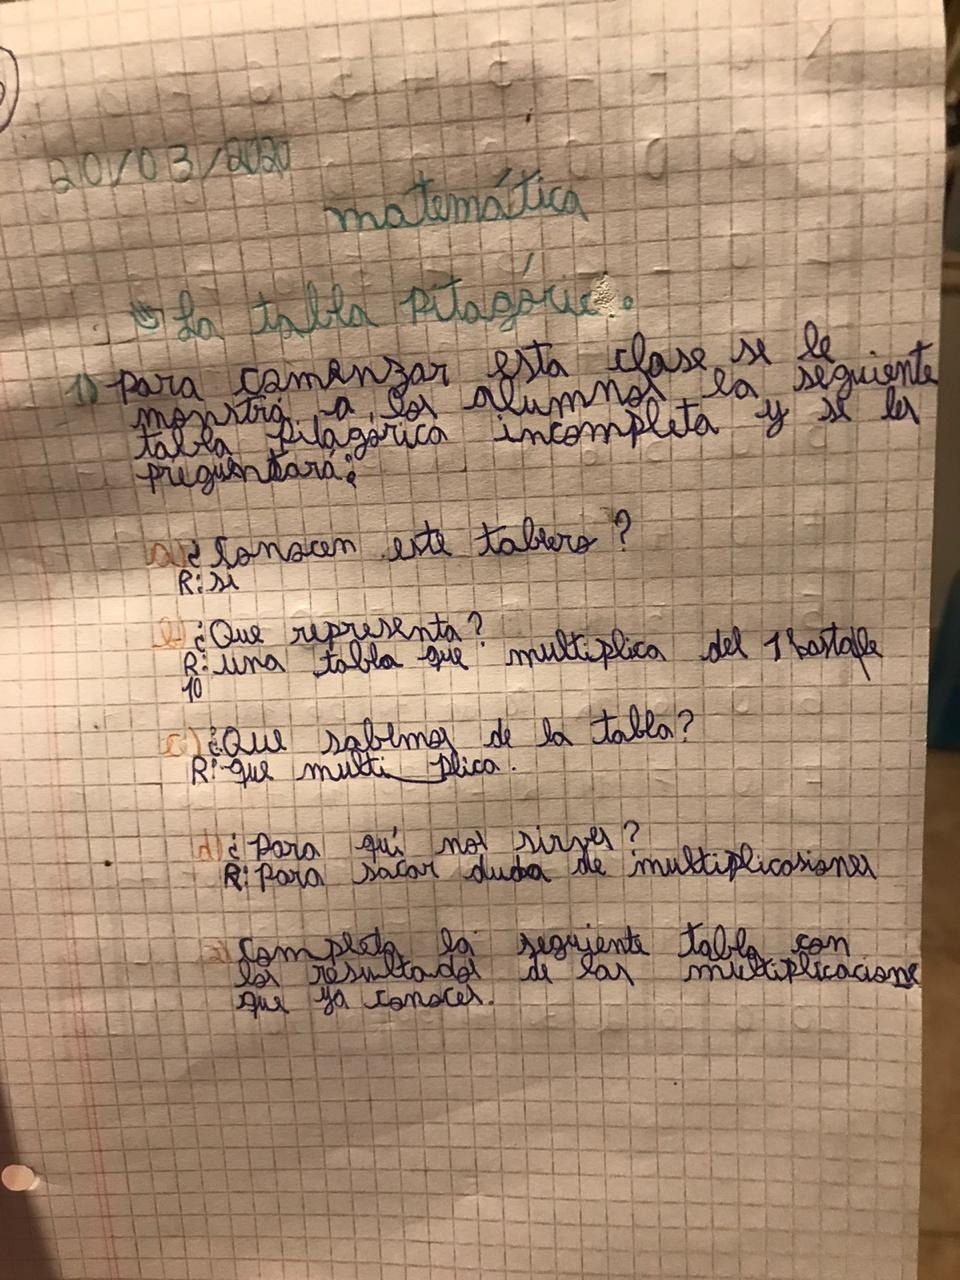 20/03/2020
matemática
La tabla Pitagóric.
1) Para comenzar esta clase se le
monstrá a los alumnos la seguiente
tabla Pitagórica incompleta y se les
preguntará:
a) ¿Conocen este tablero?
R: si
b) ¿Que representa?
R: una tabla que multiplica del 1 hasta
10
c) ¿Que sabemos de la tabla?
R: que multi plica.
d) ¿Para qué nos sirves?
R: Para sacar duda de multiplicasiones
2) Completa la seguiente tabla con
los resultados de las multiplicacione
que ya conoces.